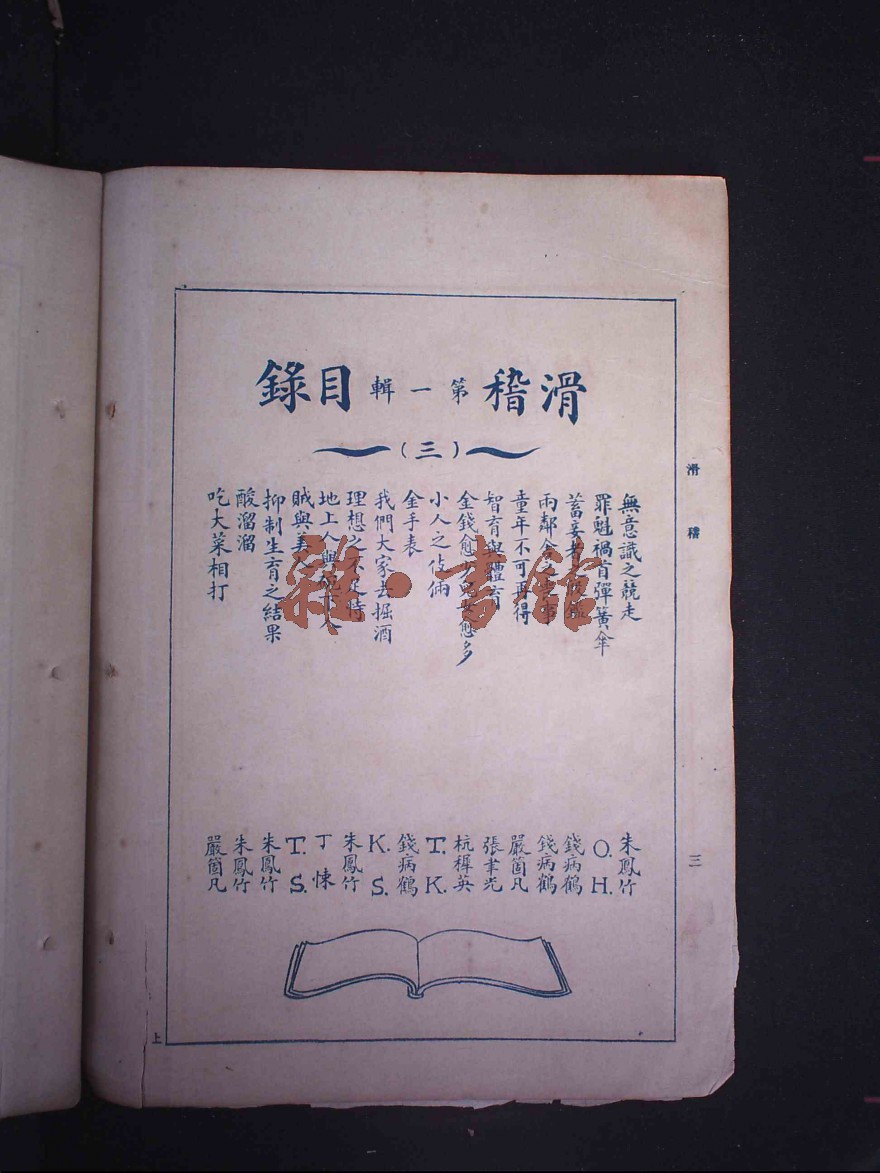 滑稽 第一輯 目錄
(三)
無意識之競走
罪魁禍首彈簧傘
蓄妾者
兩鄰舍之事
童年不可再得
智育與體育
金錢愈少兒女愈多
小人之伎倆
金手表
我們大家去掘酒
理想之不足恃
地上人與地下人
賊與美人
抑制生育之結果
酸溜溜
吃大菜相打
朱鳳竹
O. H.
錢病鶴
錢病鶴
嚴箇凡
張聿光
杭樨英
T. K.
錢病鶴
K. S.
朱鳳竹
丁悚
T. S.
朱鳳竹
朱鳳竹
嚴箇凡
滑稽
三
上
雜·書館